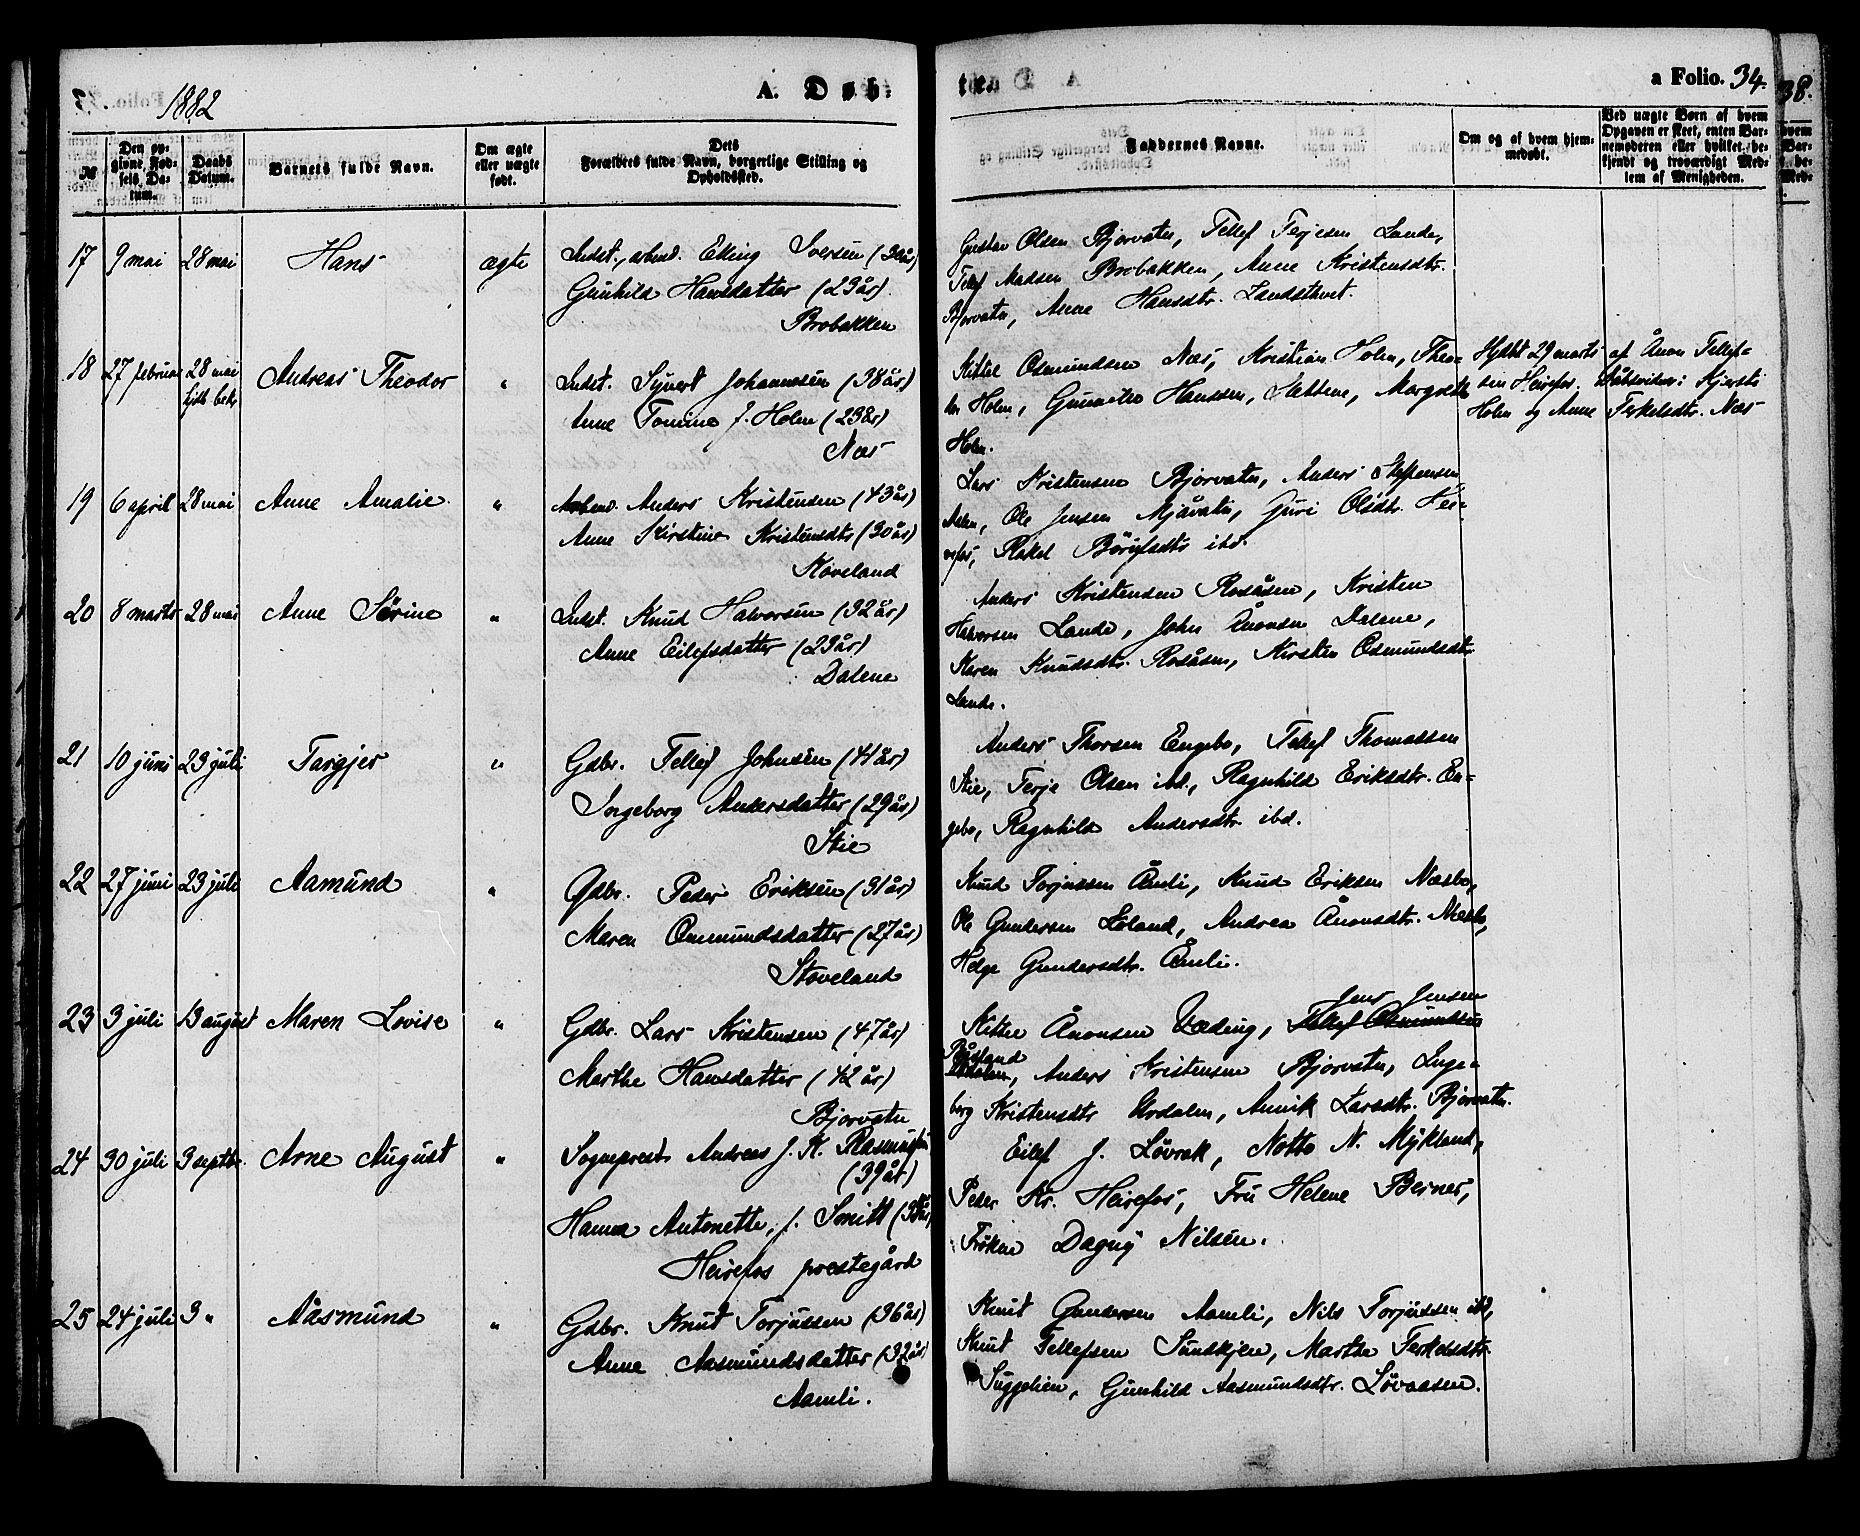 1882
A. Døb-
te.
a Folio. 34.
38.
№
Den opgivne Fødsels Datum.
Daabs Datum.
Barnets fulde Navn.
Om ægte eller uægte født.
Dets Forældres fulde Navn, borgerlige Stilling og Opholdssted.
Faddernes Navne.
Om og af hvem hjemmedøbt.
Ved uægte Børn af hvem Opgaven er skeet, enten Barnemoderen eller hvilket, bekjendt og troværdigt Medlem af Menigheden.
17 9 mai 28 mai Hans ægte Indst., arbeid. Elling Iversen (30 år)
Gunhild Hansdatter (23 år).
Brobakken
Gustav Olsen Bjorvatn, Tellef Terjesen Lande,
Tellef Madsen Brobakken, Anne Kristensdtr.
Bjorvatn, Anne Hansdtr. Landsthvet.
18 27 februar 28 mai Andreas Theodor " Indst. Syvert Johannesen (38 år)
kjbk bekr
Anne Tomine f. Holm (23 år)
Næs
Kittel Osmundsen Næs, Kristian Holm, Theo-
dor Holm, Hanssen, Margrethe
Holm.
Hjdbt 29 marts af Ånon Tellef-
sen Heirefos. Dåbsvidner: Kjersti
Holm og Anne Terkelsdtr. Næs
19 6 april 28 mai Anne Amalie " Arbeid. Anders Kristensen (43 år)
Anne Kirstine Kristensdtr (30 år)
Roveland
Lars Kristensen Bjorvatn, Anders Steffensen
Ole Jensen Mjåvatn, Guri Olsdtr. Hei-
refos, Rakel ibd.
20 8 marts 28 mai Anne Sørine " Indst. Knud Halvorsen (32 år)
Anne Eilefsdatter (23 år)
Dalene
Anders Kristensen Rosåsen, Kristen
Halvorsen Lande, John Ånonsen Dalene,
Karen Knudsdtr. Rosåsen, Kirsten Osmundsdtr
Lande.
21 10 juni 23 juli Targjer " Gdbr. Tellef Johnsen (41 år)
Ingeborg Andersdatter (29 år)
Stie
Anders Thorsen Engebo, Tellef Thomassen
Stie, Terje Olsen ibd., Ragnhild Eriksdtr. En-
gebo, Ragnhild Andersdtr. ibd.
22 27 juni 23 juli Aamund " Gdbr. Peder Eriksen (31 år)
Maren Osmundsdatter (27 år)
Stoveland
Knud Torjussen Åmli, Knud Eriksen Næsbo,
Ole Gundersen Eoland, Andrea Ånonsdtr. Næsbo,
Helge Gundersdtr. Åmli.
23 3 juli 13 august Maren Lovise " Gdbr. Lars Kristensen (47 år)
Marthe Hansdatter (42 år)
Bjorvatn
Jens Jensen
Kittel Ånonsen Væding, Tellef Osmundsen
Røysland
Anders Kristensen Bjorvatn, Inge-
borg Kristensdtr Urdalen, Annik Larsdtr. Bjorvatn.
24 30 juli 3 septbr. Arne August " Sogneprest Andreas J. K. Rasmussen
(39 år)
Hanna Antonette, f. Smitt (38 år)
Heirefos prestegård
Eilef J. Løvrak, Notto N. Mykland,
Peder Kr. Heirefos, Fru Helene Berner,
Frøken Dagny Nilsen.
25 24 juli 3 " Aasmund " Gdbr. Knut Torjussen (36 år)
Anne Aasmundsdatter (32 år)
Aamli.
Knut Gundersen Aamli, Nils Torjussen ibd,
Knut Tellefsen Sundkjær, Marthe Terkelsdtr.
Suggelien, Gunhild Aasmundsdtr. Løvaasen.